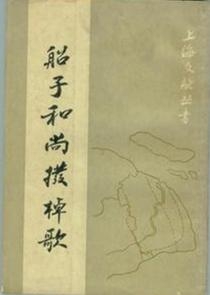 上海文献丛书
船子和尚撥棹歌